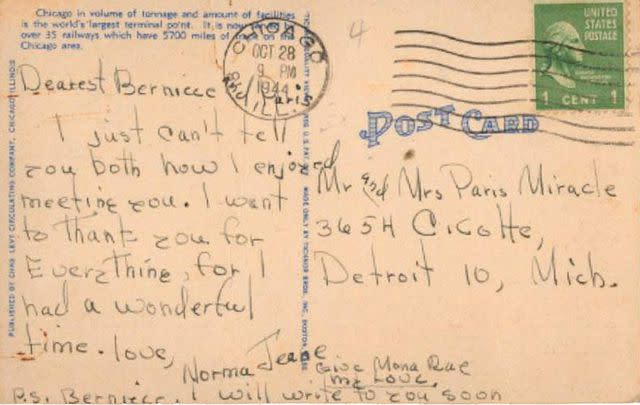 Chicago in volume of tonnage and amount of facilities
is the world's largest terminal point. It is now
over 35 railways which have 5700 miles of on the
Chicago area.
CHICAGO
OCT 28
9 PM
1944
ILL.
4
UNITED
STATES
POSTAGE
1 CENT 1
POST CARD
Dearest Bernicce
and Paris
I just can't tell
you both how I enjoyed
meeting you. I want
to thank you for
Everything, for I
had a wonderful
time. love,
Norma Jeane
Give Mona Rae
my Love.
P.S. Bernicce. I will write to you soon
Mr and Mrs Paris Miracle
3654 Cicotte,
Detroit 10, Mich.
PUBLISHED BY CHAS. LEVY CIRCULATING COMPANY, CHICAGO, ILLINOIS
QUALITY VIEWS MADE ONLY BY TICHNOR BROS., INC., BOSTON